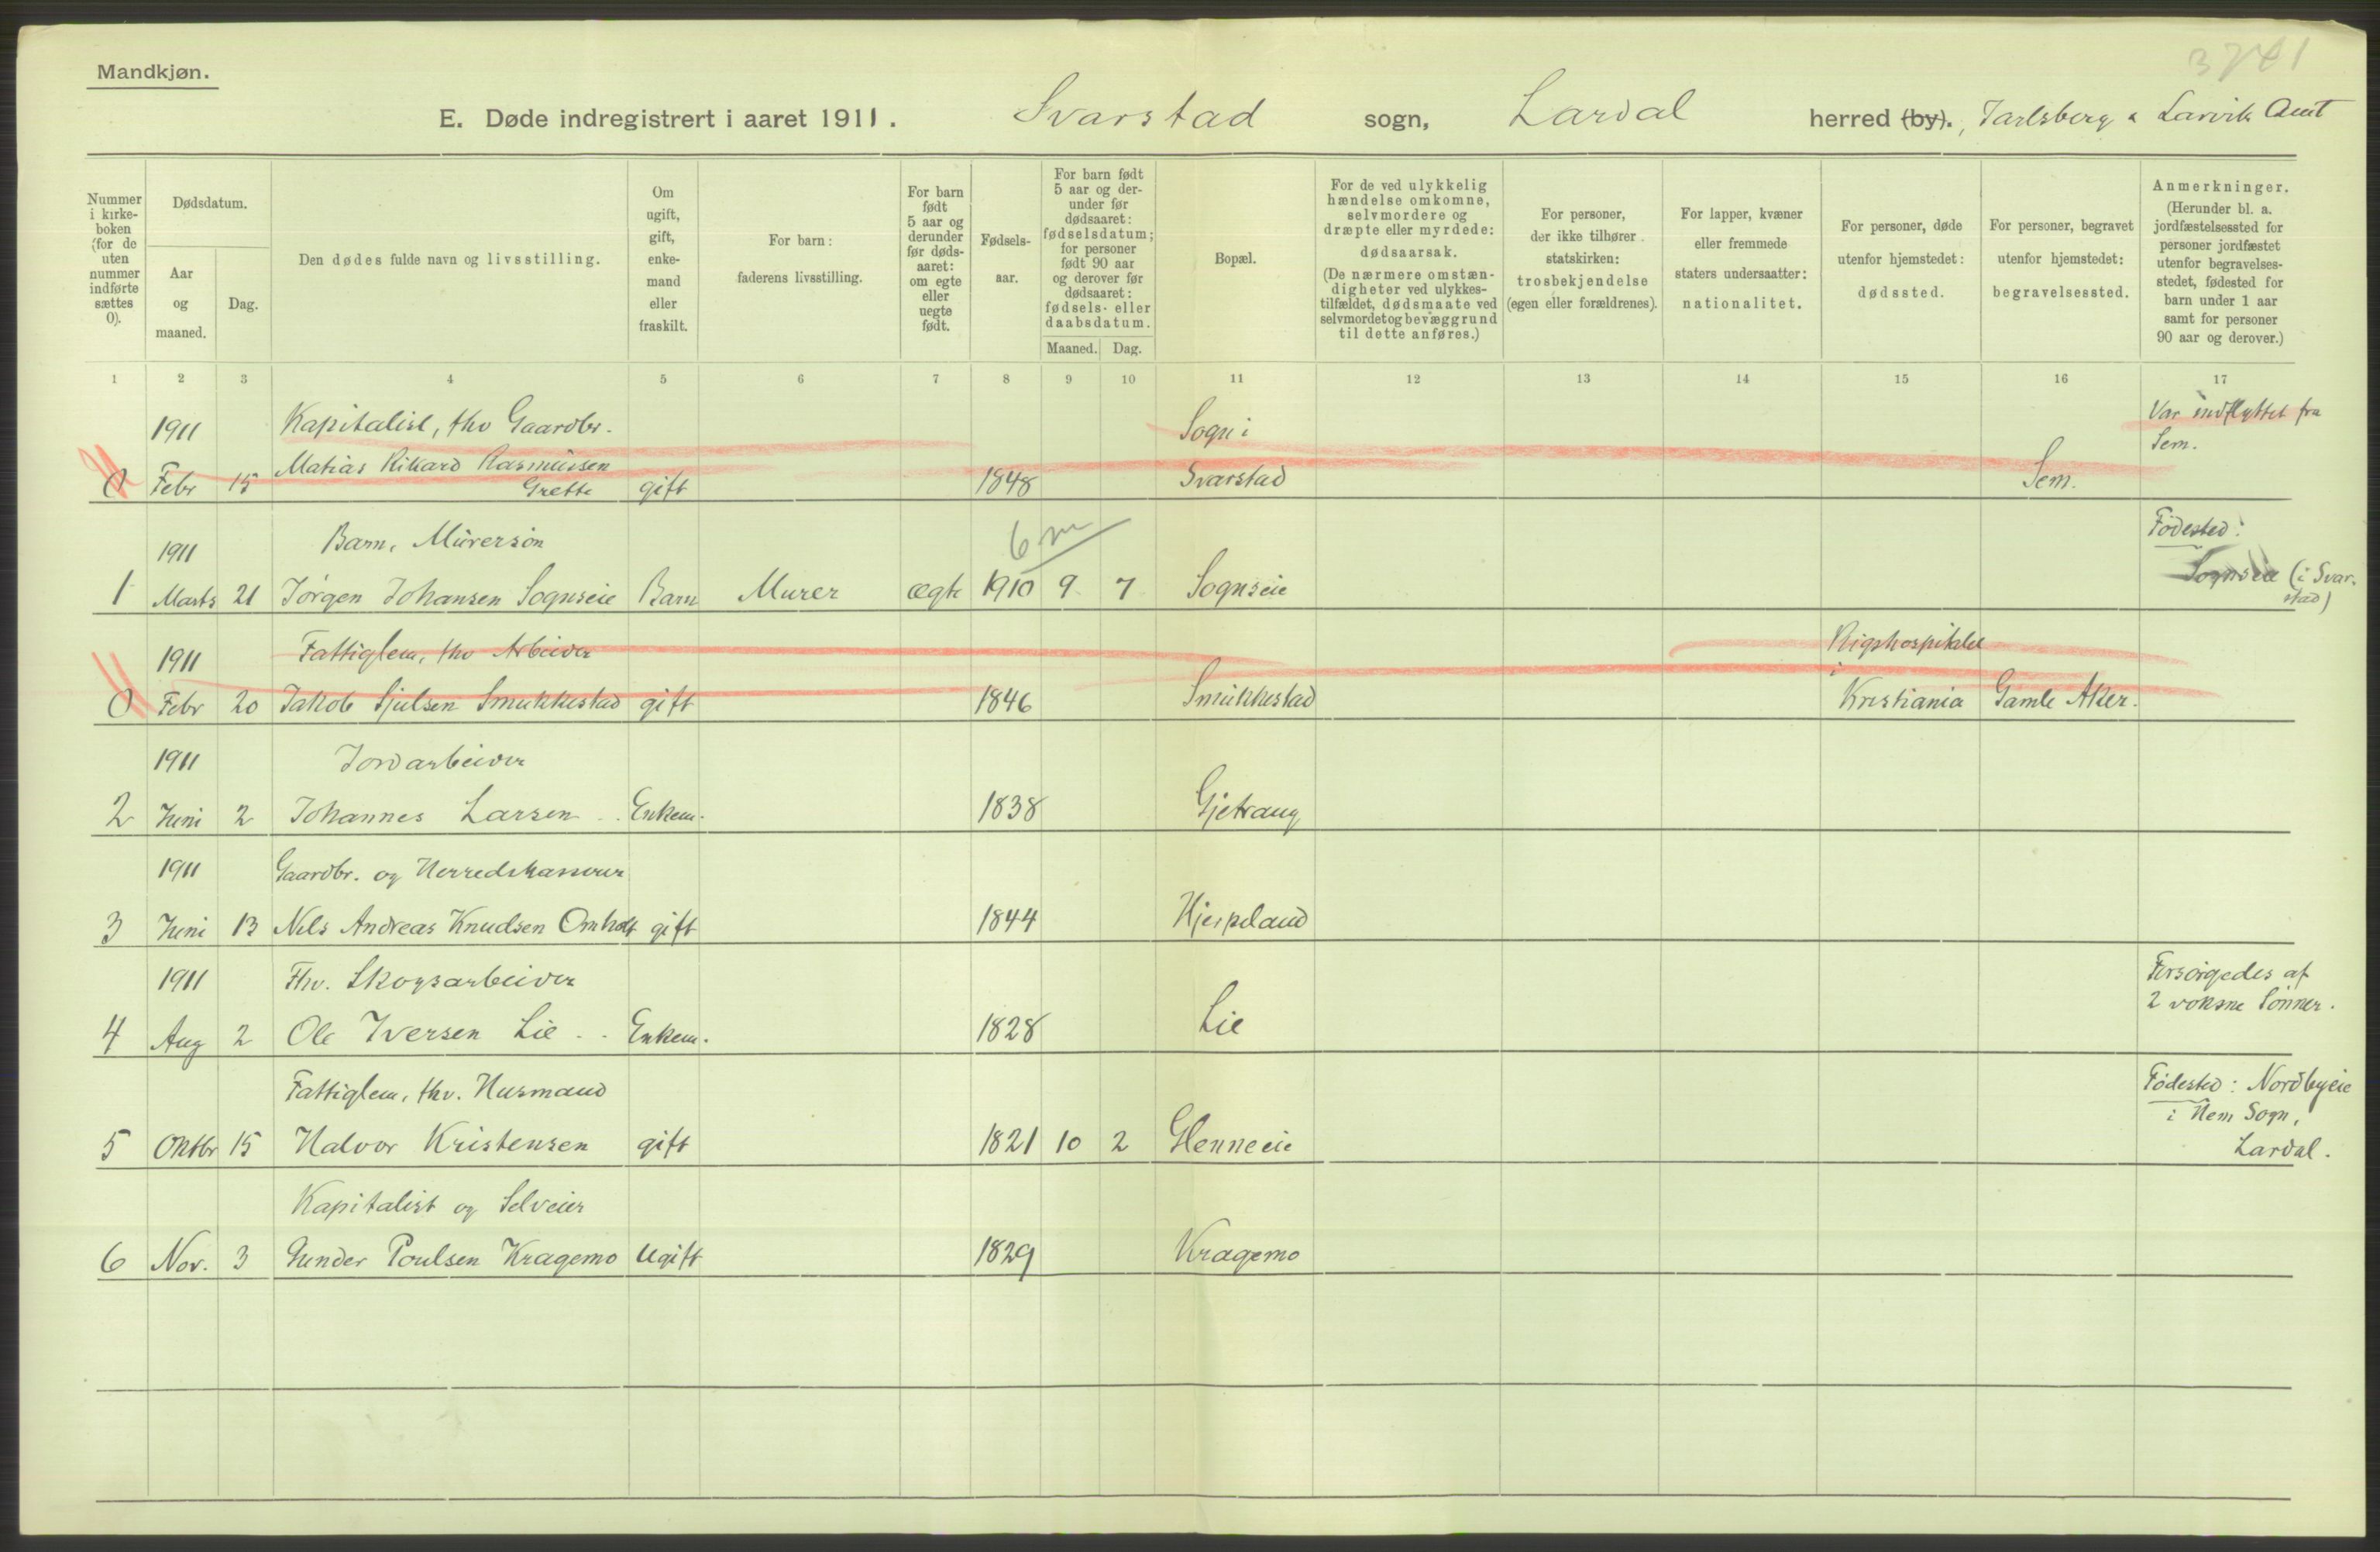 Mandkjøn.
E. Døde indregistrert i aaret 1911. Svarstad sogn, Lardal herred (by)., Jarlsberg & Larvik Amt
Nummer i kirkeboken (for de uten nummer indførte sættes 0).
Dødsdatum.
Aar og maaned.
Dag.
Den dødes fulde navn og livsstilling.
Om ugift, gift, enkemand eller fraskilt.
For barn: faderens livsstilling.
For barn født 5 aar og derunder før dødsaaret: om egte eller uegte født.
Fødselsaar.
For barn født 5 aar og derunder før dødsaaret: fødselsdatum; for personer født 90 aar og derover før dødsaaret: fødsels- eller daabsdatum.
Maaned. Dag.
Bopæl.
For de ved ulykkelig hændelse omkomne, selvmordere og dræpte eller myrdede: dødsaarsak. (De nærmere omstændigheter ved ulykkestilfældet, dødsmaate ved selvmord et og bevæggrund til dette anføres.)
For personer, der ikke tilhører statskirken: trosbekjendelse (egen eller forældrenes).
For lapper, kvæner eller fremmede staters undersaatter: nationalitet.
For personer, døde utenfor hjemstedet: dødssted.
For personer, begravet utenfor hjemstedet: begravelsessted.
Anmerkninger. (Herunder bl. a. jordfæstelsessted for personer jordfæstet utenfor begravelsesstedet, fødested for barn under 1 aar samt for personer 90 aar og derover.)
1 2 3 4 5 6 7 8 9 10 11 12 13 14 15 16 17
1911 Kapitalist, fhv Gaardbr. Sogn i Var indflyttet fra
Sem.
0 Febr 15 Matias Rikard Rasmussen
Grette gift 1848 Svarstad Sem.
1911 Barn, Murersøn 6 m Fødested:
1 Marts 21 Jørgen Johansen Sognseie Barn Murer ægte 1910 9 7 Sognseie Sognseie (i Svar-
stad)
1911 Fattiglem, fhv Arbeider Rigshospitalet
i
0 Febr 20 Jakob Sjulsen Smukkestad gift 1846 Smukkestad Kristiania Gamle Aker.
1911 Jordarbeider
2 Juni 2 Johannes Larsen Enkem. 1838 Gjetrang
1911 Gaardbr. og Herredskasserer
3 Juni 13 Nils Andreas Knudsen Omholt gift 1844 Hjerpeland
1911 Fhv. Skogsarbeider Forsørgedes af
2 voksne Sønner.
4 Aug 2 Ole Iversen Lie Enkem. 1828 Lie
Fattiglem, fhv. Husmand Fødested: Nordbyeie
i Hem Sogn,
5 Oktbr 15 Halvor Kristensen gift 1821 10 2 Glenneeie Lardal.
Kapitalist og Selveier
6 Nov. 3 Gunder Poulsen Kragemo Ugift 1829 Kragemo